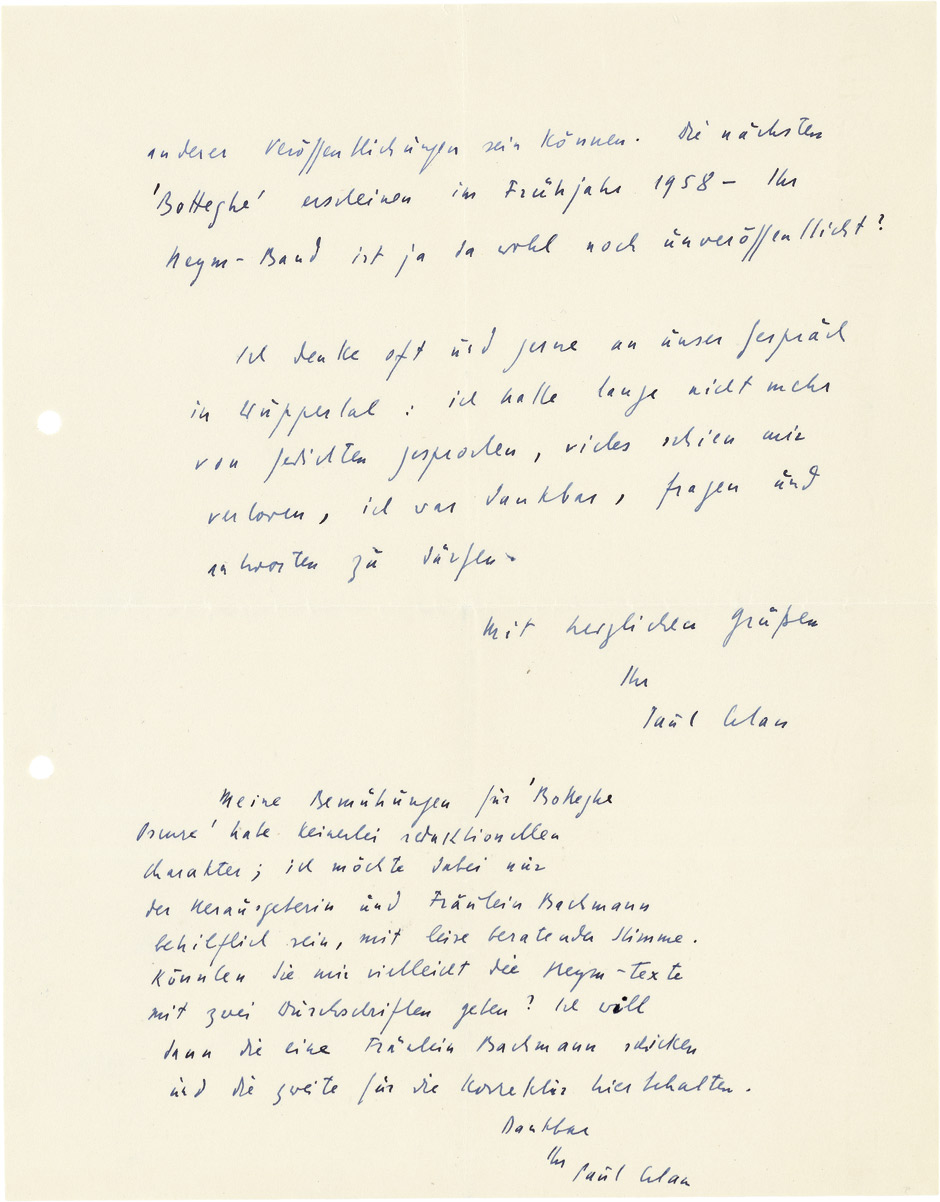 anderer Veröffentlichungen sein können. Die nächsten
'Botteghe' erscheinen im Frühjahr 1958 – Ihr
Heym-Band ist ja da wohl noch unveröffentlicht?
Ich denke oft und gerne an unser Gespräch
in Wuppertal: ich hatte lange nicht mehr
von Gedichten gesprochen, vieles schien mir
verloren, ich war dankbar, fragen und
antworten zu dürfen.
Mit herzlichen Grüßen
Ihr
Paul Celan
Meine Bemühungen für 'Botteghe
Oscure' habe keinerlei redaktionellen
Charakter; ich möchte dabei nur
der Herausgeberin und Fräulein Bachmann
behilflich sein, mit leise beratender Stimme.
Könnten Sie mir vielleicht die Heym-Texte
mit zwei Durchschriften geben? Ich will
dann die eine Fräulein Bachmann schicken
und die zweite für die Korrektur hierbehalten.
Dankbar
Ihr
Paul Celan